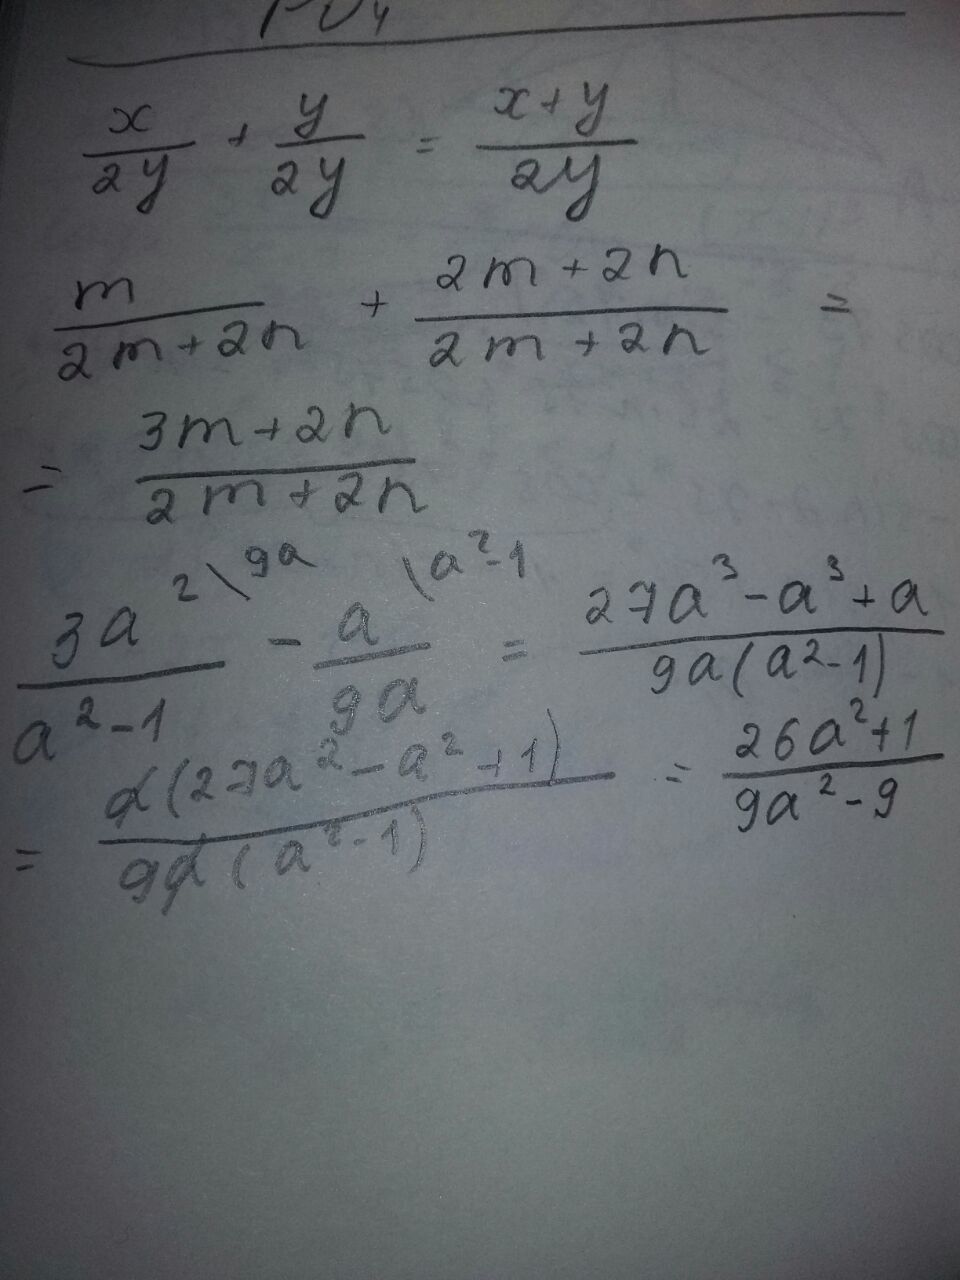 PO₄
x/2y + y/2y = (x+y)/2y
m/(2m+2n) + (2m+2n)/(2m+2n) =
= (3m+2n)/(2m+2n)
3a²\9a/(a²-1) - a\a²-1/9a = (27a³-a³+a)/(9a(a²-1))
= a(27a²-a²+1)/(9a(a²-1)) = (26a²+1)/(9a²-9)